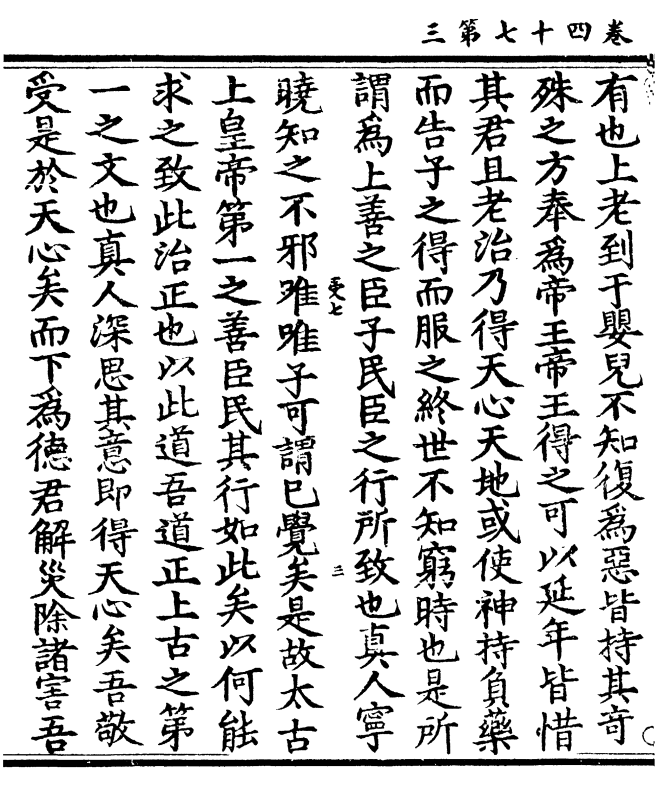 卷四十七第三
有也上老到于嬰兒不知復爲惡皆持其奇
殊之方奉爲帝王帝王得之可以延年皆惜
其君且老治乃得天心天地或使神持負藥
而告子之得而服之終世不知窮時也是所
謂爲上善之臣子民臣之行所致也眞人寧
曉知之不邪唯唯子可謂巳覺矣是故太古
上皇帝第一之善臣民其行如此矣以何能
求之致此治正也以此道吾道正上古之第
一之文也真人深思其意即得天心矣吾敬
受是於天心矣而下爲德君解災除諸害吾
三